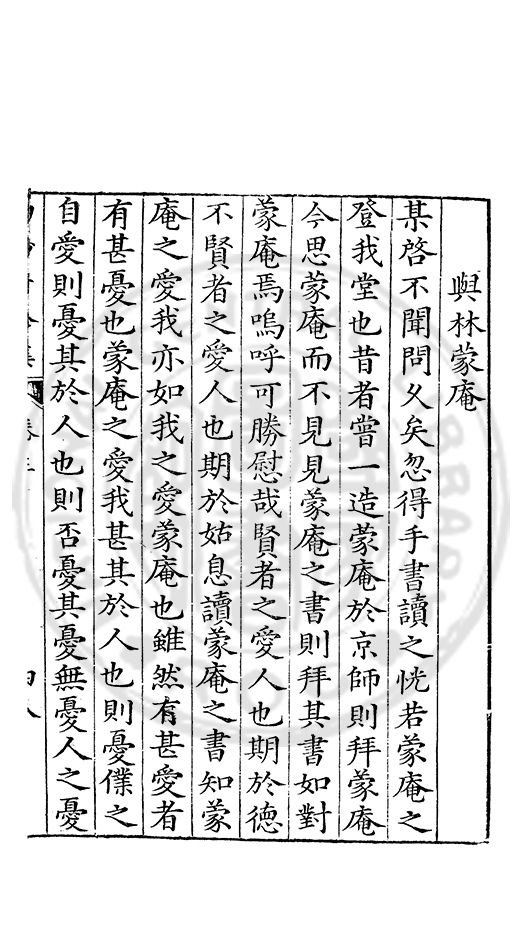 與林蒙庵
某啓不聞問久矣忽得手書讀之恍若蒙庵之
登我堂也昔者嘗一造蒙庵於京師則拜蒙庵
今思蒙庵而不見見蒙庵之書則拜其書如對
蒙庵焉嗚呼可勝慰哉賢者之愛人也期於德
不賢者之愛人也期於姑息讀蒙庵之書知蒙
庵之愛我亦如我之愛蒙庵也雖然有甚愛者
有甚憂也蒙庵之愛我甚其於人也則憂僕之
自愛則憂其於人也則否憂其憂無憂人之憂